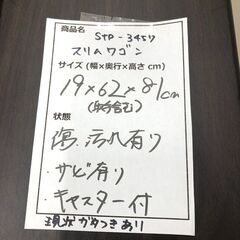 商品名
STP-3457
スリムワゴン
サイズ(幅×奥行×高さ cm)
19×62×81cm
(取手含む)
状態
傷、汚れ有り
・サビ有り
・キャスター付
現状がたつきあり